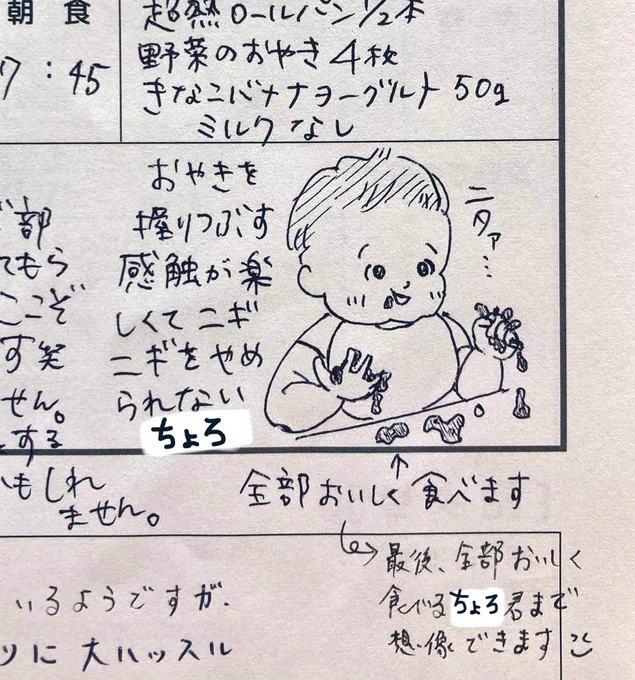 朝食
7:45
超熟ロールパン1/2本
野菜のおやき4枚
きなこバナナヨーグルト 50g
ミルクなし
おやきを
握りつぶす
感触が楽
しくてニギ
ニギをやめ
られない
ちょろ
ニタァ…
部
てもら
こぞ
す笑
せん。
する
かもしれ
ません。
全部おいしく食べます
↑
最後、全部おいしく
食べるちょろ君まで
想像できます
いるようですが、
ツに大ハッスル